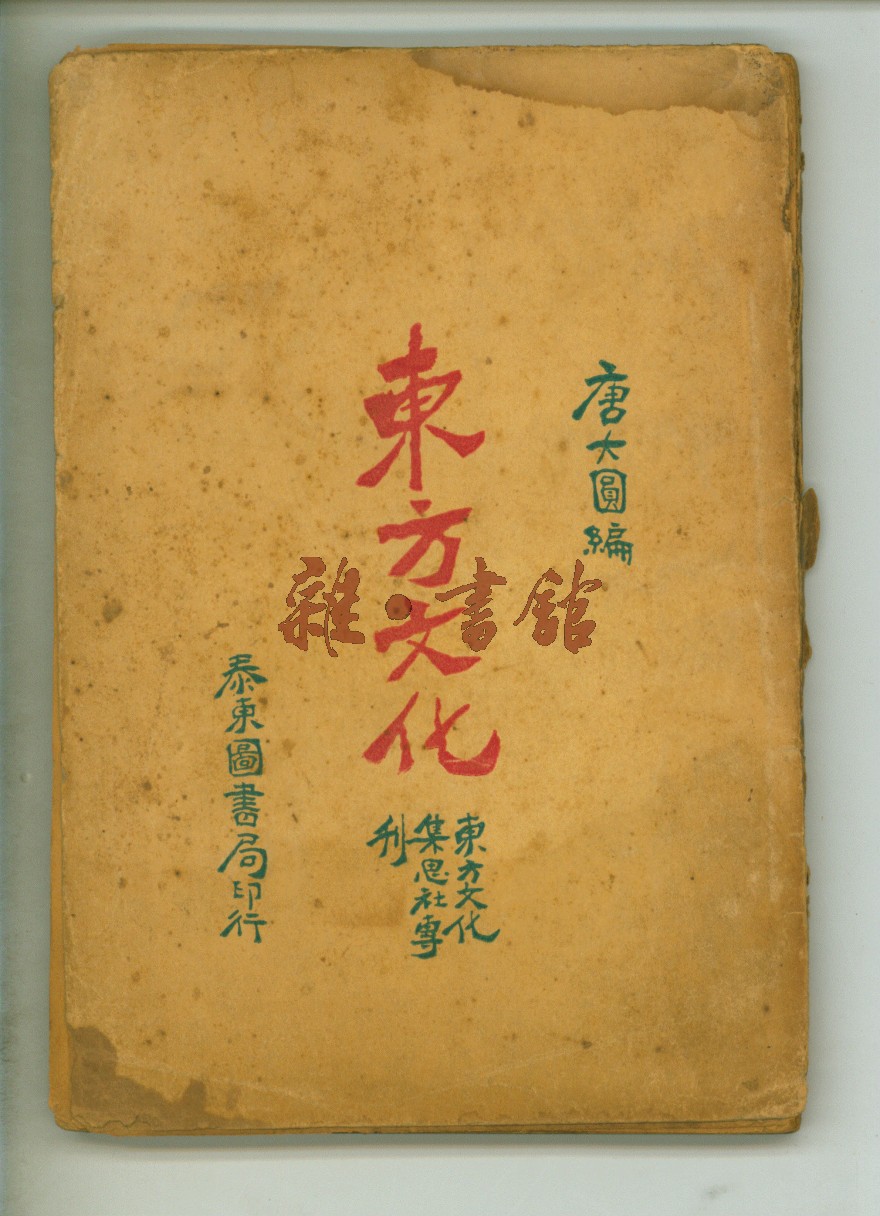 唐大圓編
東方文化
東方文化
集思社專
刊
泰東圖書局印行
雜·書館